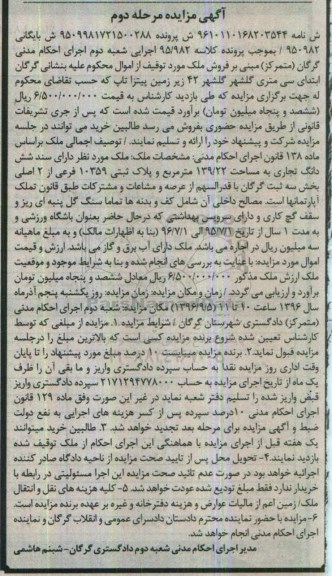 آگهی مزایده مرحله دوم
ش نامه ۹۶۱۰۱۱۰۱۶۸۲۰۳۵۴۴ ش پرونده ۹۵۰۹۹۸۱۷۲۱۵۰۰۲۸۸ ش بایگانی
۹۵۰۹۸۲ / بموجب پرونده کلاسه ۹۵/۹۸۲ اجرایی شعبه دوم اجرای احکام مدنی
گرگان (متمرکز) مبنی بر فروش ملک مورد توقیف از اموال محکوم علیه بنشانی گرگان
ابتدای سی متری گلشهر گلشهر ۴۲ زیر زمین پیتزا تاب که حسب تقاضای محکوم
له جهت برگزاری مزایده که طی بازدید کارشناس به قیمت ۶/۵۰۰/۰۰۰/۰۰۰ ریال
(ششصد و پنجاه میلیون تومان) برآورد قیمت شده است که پس از جری تشریفات
قانونی از طریق مزایده حضوری بفروش می رسد طالبین خرید می توانند در جلسه
مزایده شرکت و پیشنهاد خود را ارائه و تسلیم نمایند. / توصیف اجمالی ملک براساس
ماده ۱۳۸ قانون اجرای احکام مدنی: مشخصات ملک: ملک مورد نظر دارای سند شش
دانگ تجاری به مساحت ۱۳۹/۲۲ مترمربع و پلاک ثبتی ۱۰۳۵۹ فرعی از ۲ اصلی
بخش سه ثبت گرگان با قدرالسهم از عرصه و مشاعات و مشترکات طبق قانون تملک
آپارتمانها است. مصالح داخلی آن شامل کف و بدنه ها تماما سنگ گل پنبه ای ریز و
سقف گچ کاری و دارای سرویس بهداشتی که درحال حاضر بعنوان باشگاه ورزشی و
به مدت ۱ سال از تاریخ ۹۵/۷/۱ الی ۹۶/۷/۱ (بنا به اظهارات مالک) و به مبلغ ماهیانه
سه میلیون ریال در اجاره می باشد. ملک دارای آب برق و گاز می باشد. ارزش و قیمت
اموال مورد مزایده: با عنایت به بررسی های انجام شده و بنا به شرایط موجود و موقعیت
ملک ارزش ملک مذکور ۶/۵۰۰/۰۰۰/۰۰۰ ریال معادل ششصد و پنجاه میلیون تومان
برآورد و ارزیابی می گردد. / زمان و مکان مزایده: زمان مزایده: روز یکشنبه پنجم آذرماه
سال ۱۳۹۶ ساعت ۱۰ تا ۱۱ (۱۳۹۶/۹/۵) مکان مزایده: شعبه دوم اجرای احکام مدنی
(متمرکز) دادگستری شهرستان گرگان / شرایط مزایده ۱. مزایده از مبلغی که توسط
کارشناس تعیین شده شروع برنده مزایده کسی است که بالاترین مبلغ را درجلسه
مزایده قبول نماید ۲. برنده مزایده میبایست ۱۰ درصد مبلغ مورد پیشنهاد را تا پایان
وقت اداری روز مزایده نقدا به حساب سپرده دادگستری واریز و ما بقی آن را ظرف
یک ماه از تاریخ اجرای مزایده به حساب ۲۱۷۱۲۹۴۷۷۸۰۰۰ سپرده دادگستری واریز
قبض واریز شده را تسلیم دفتر شعبه نماید در غیر این صورت وفق ماده ۱۲۹ قانون
اجرای احکام مدنی ۱۰ درصد سپرده پس از کسر هزینه های اجرایی به نفع دولت
ضبط و آگهی مزایده برای مرحله بعد تجدید خواهد شد. ۳. طالبین خرید میتوانند
یک هفته قبل از اجرای مزایده با هماهنگی این اجرای احکام از ملک توقیف شده
بازدید نمایند. ۴- تحویل محل پس از تایید صحت مزایده از ناحیه دادگاه صادر کننده
اجرائیه خواهد بود در صورت عدم تائید صحت مزایده این اجرا مسئولیتی در رابطه با
خریدار ندارد فقط مبلغ تودیع شده عودت خواهد شد. ۵- کلیه هزینه های نقل و انتقال
ملک / زمین اعم از مالیات عوارض و هزینه دفترخانه و غیره بر عهده برنده مزایده است.
۶- مزایده با حضور نماینده محترم دادستان دادسرای عمومی و انقلاب گرگان و نماینده
اجرای احکام مدنی انجام خواهد شد.
مدیر اجرای احکام مدنی شعبه دوم دادگستری گرگان – شبنم هاشمی